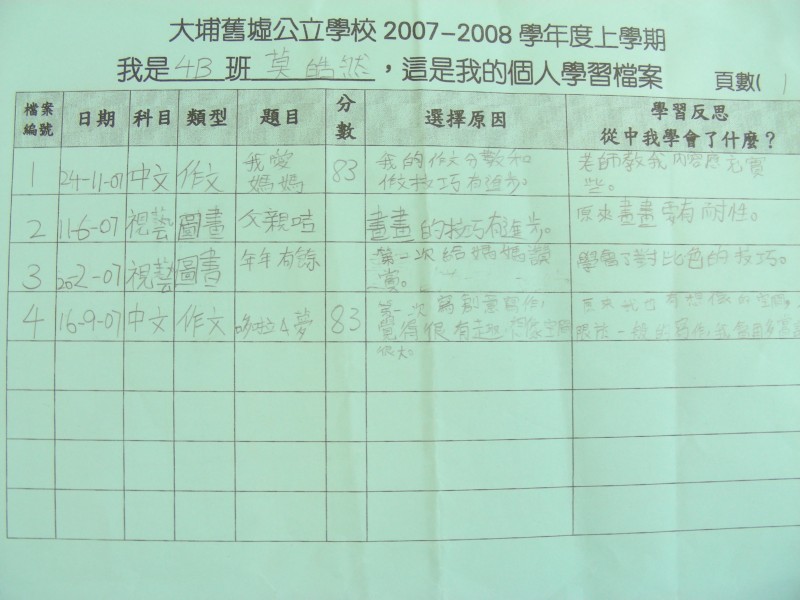 大埔舊墟公立學校 2007-2008 學年度上學期
我是 4B 班 莫皓然 ，這是我的個人學習檔案 頁數( 1
檔案編號 日期 科目 類型 題目 分數 選擇原因 學習反思 從中我學會了什麼？
1 24-11-07 中文 作文 我愛媽媽 83 我的作文分數和作文技巧有進步。 老師教我內容應充實些。
2 11-6-07 視藝 圖畫 父親咭 畫畫的技巧有進步。 原來畫畫需有耐性。
3 視藝 圖畫 年年有餘 第一次給媽媽讚賞。 學習了對比色的技巧。
4 16-9-07 中文 作文 哆啦A夢 83 第一次寫創意寫作，覺得很有趣，想像空間很大。 原來我也有想像的空間，